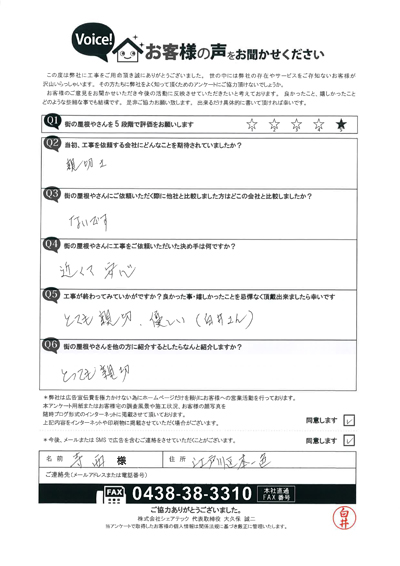 Voice!
お客様の声をお聞かせください
この度は弊社に工事をご用命頂き誠にありがとうございました。世の中には弊社の存在やサービスをご存知ないお客様が
沢山いらっしゃいます。その方たちに弊社をよく知って頂くためのアンケートにご協力頂けないでしょうか。
お客様のご意見をお聞かせいただき今後の活動に反映させていただきたいと考えております。良かったこと、嬉しかったこと
どのような些細な事でも結構です。是非ご協力お願い致します。出来るだけ具体的に書いて頂ければ幸いです。
Q1 街の屋根やさんを5段階で評価をお願いします ☆ ☆ ☆ ☆ ★
Q2 当初、工事を依頼する会社にどんなことを期待されていましたか?
親切さ
Q3 街の屋根やさんにご依頼いただく際に他社と比較しました方はどこの会社と比較しましたか?
ないです
Q4 街の屋根やさんに工事をご依頼いただいた決め手は何ですか?
近くて 安心
Q5 工事が終わってみていかがですか?良かった事・嬉しかったことを忌憚なく頂戴出来ましたら幸いです
とても親切、優しい(白井さん)
Q6 街の屋根やさんを他の方に紹介するとしたらなんと紹介しますか?
とても親切
*弊社は広告宣伝費を極力かけない為にホームページだけを頼りにお客様への営業活動を行っております。
本アンケート用紙またはお客様宅の調査風景や施工状況、お客様の顔写真を
随時ブログ形式のインターネットに掲載させて頂いております。
上記内容をインターネットや印刷物に掲載させていただく場合がございます。 同意します ✓
*今後、メールまたはSMSで広告を含むご連絡をさせていただくことがございます。 同意します ✓
名前 様 住所 江戸川区本一色
ご連絡先(メールアドレスまたは電話番号)
FAX 0438-38-3310 本社直通 FAX番号
ご協力ありがとうございました。
株式会社シェアテック 代表取締役 大久保 誠二
当アンケートで取得したお客様の個人情報は関係法規に基づき厳正に管理いたします。
白井